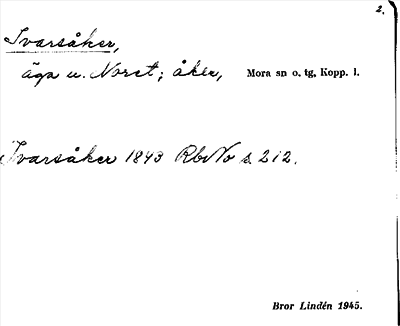 2.
Ivarsåker,
äga u. Noret; åker, Mora sn o. tg, Kopp. l.
Ivarsåker 1843 RbNo s. 212.
Bror Lindén 1945.